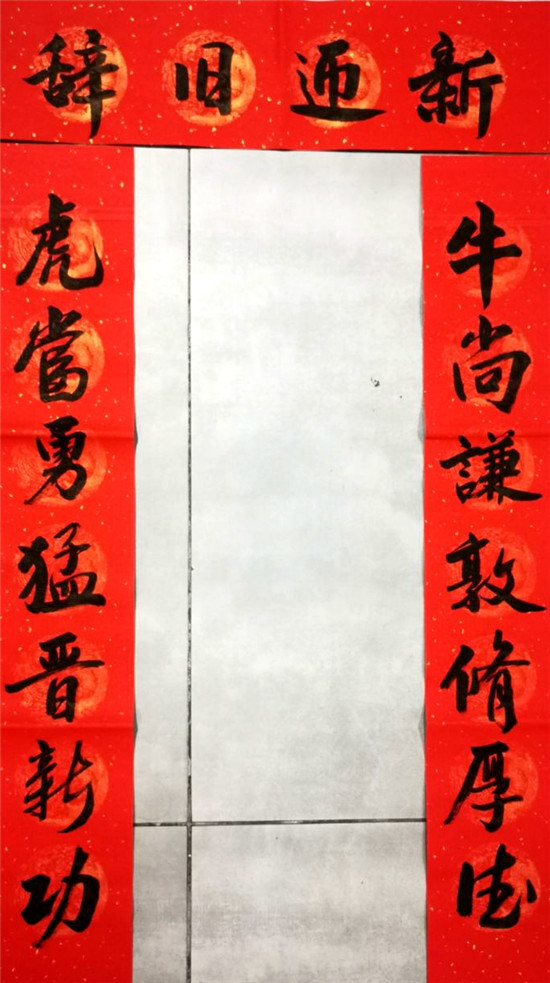 辞旧迎新
牛尚謙敦脩厚德
虎當勇猛晋新功